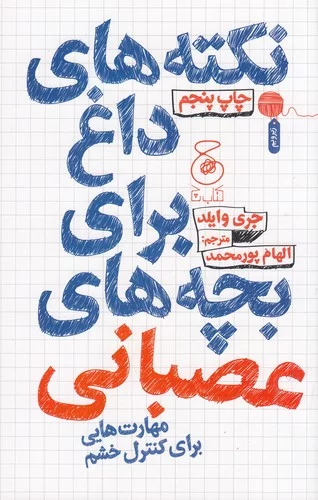 نکته‌های
چاپ پنجم
داغ
زیر و بم
کتاب چ
جری وایلد
مترجم:
الهام پورمحمد
برای
بچه‌های
عصبانی
مهارت‌هایی
برای کنترل خشم